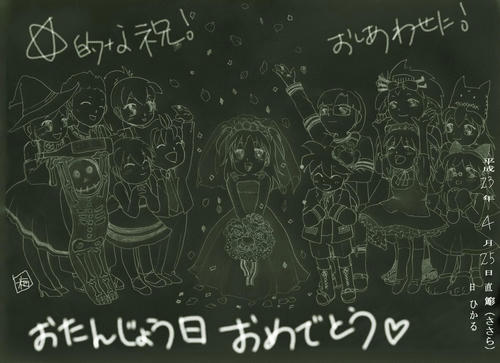 ☆的な祝!
おしあわせに!
平成23年4月25日直筆(ささら)
日ひかる
おたんじょう日 おめでとう♡